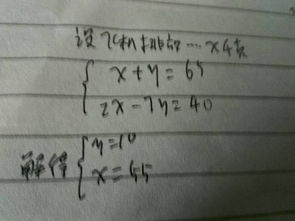 设
x+y=65
2x-7y=40
解得
y=10
x=55